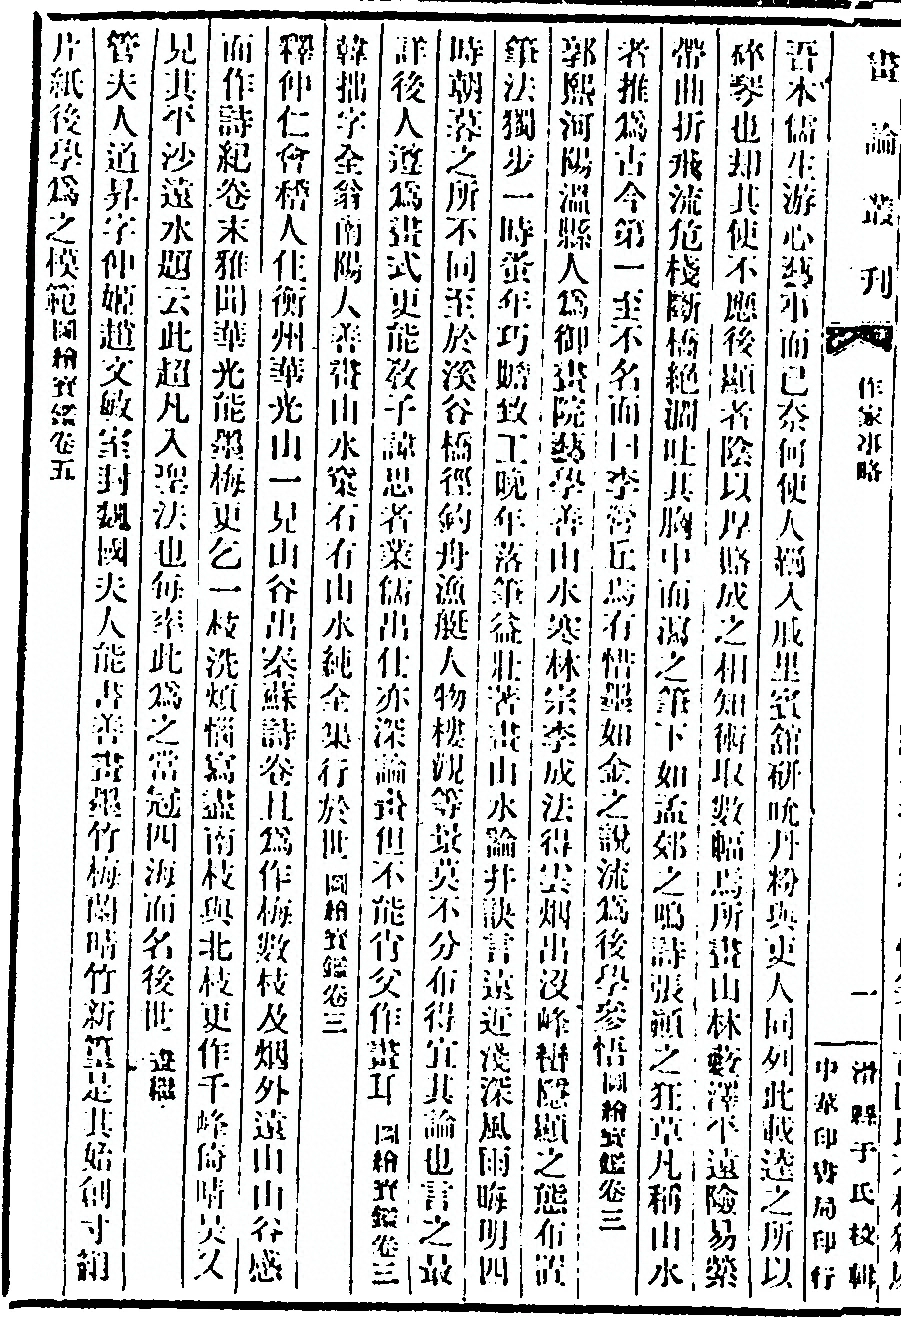 畫論叢刊
作家事略
一
滑縣于氏校輯
中華印書局印行
吾本儒生游心藝事而已奈何使人羈入戚里賓舘研吮丹粉與史人同列此戴逵之所以
碎琴也却其使不應後顯者陰以厚賂成之相知術取數幅焉所畫山林藪澤平遠險易縈
帶曲折飛流危棧斷橋絕澗吐其胸中而瀉之筆下如孟郊之鳴詩張顚之狂草凡稱山水
者推爲古今第一至不名而曰李營丘焉有惜墨如金之說流爲後學參悟圖繪寶鑑卷三
郭熙河陽溫縣人爲御畫院藝學善山水寒林宗李成法得雲烟出沒峰巒隱顯之態布置
筆法獨步一時蚤年巧贍致工晚年落筆益壯著畫山水論并訣言遠近淺深風雨晦明四
時朝暮之所不同至於溪谷橋徑釣舟漁艇人物樓觀等景莫不分布得宜其論也言之最
詳後人遵爲畫式更能敎子諒思者業儒出仕亦深論畫但不能省父作畫耳圖繪寶鑑卷三
韓拙字全翁南陽人善畫山水窠石有山水純全集行於世圖繪寶鑑卷三
釋仲仁會稽人住衡州華光山一見山谷出秦蘇詩卷且爲作梅數枝及烟外遠山山谷感
而作詩紀卷末雅聞華光能墨梅更乞一枝洗煩惱寫盡南枝與北枝更作千峰倚晴昊又
見其平沙遠水題云此超凡入聖法也每率此爲之當冠四海而名後世畫繼
管夫人道昇字仲姬趙文敏室封魏國夫人能書善畫墨竹梅蘭晴竹新篁是其始創寸絹
片紙後學爲之模範圖繪寶鑑卷五